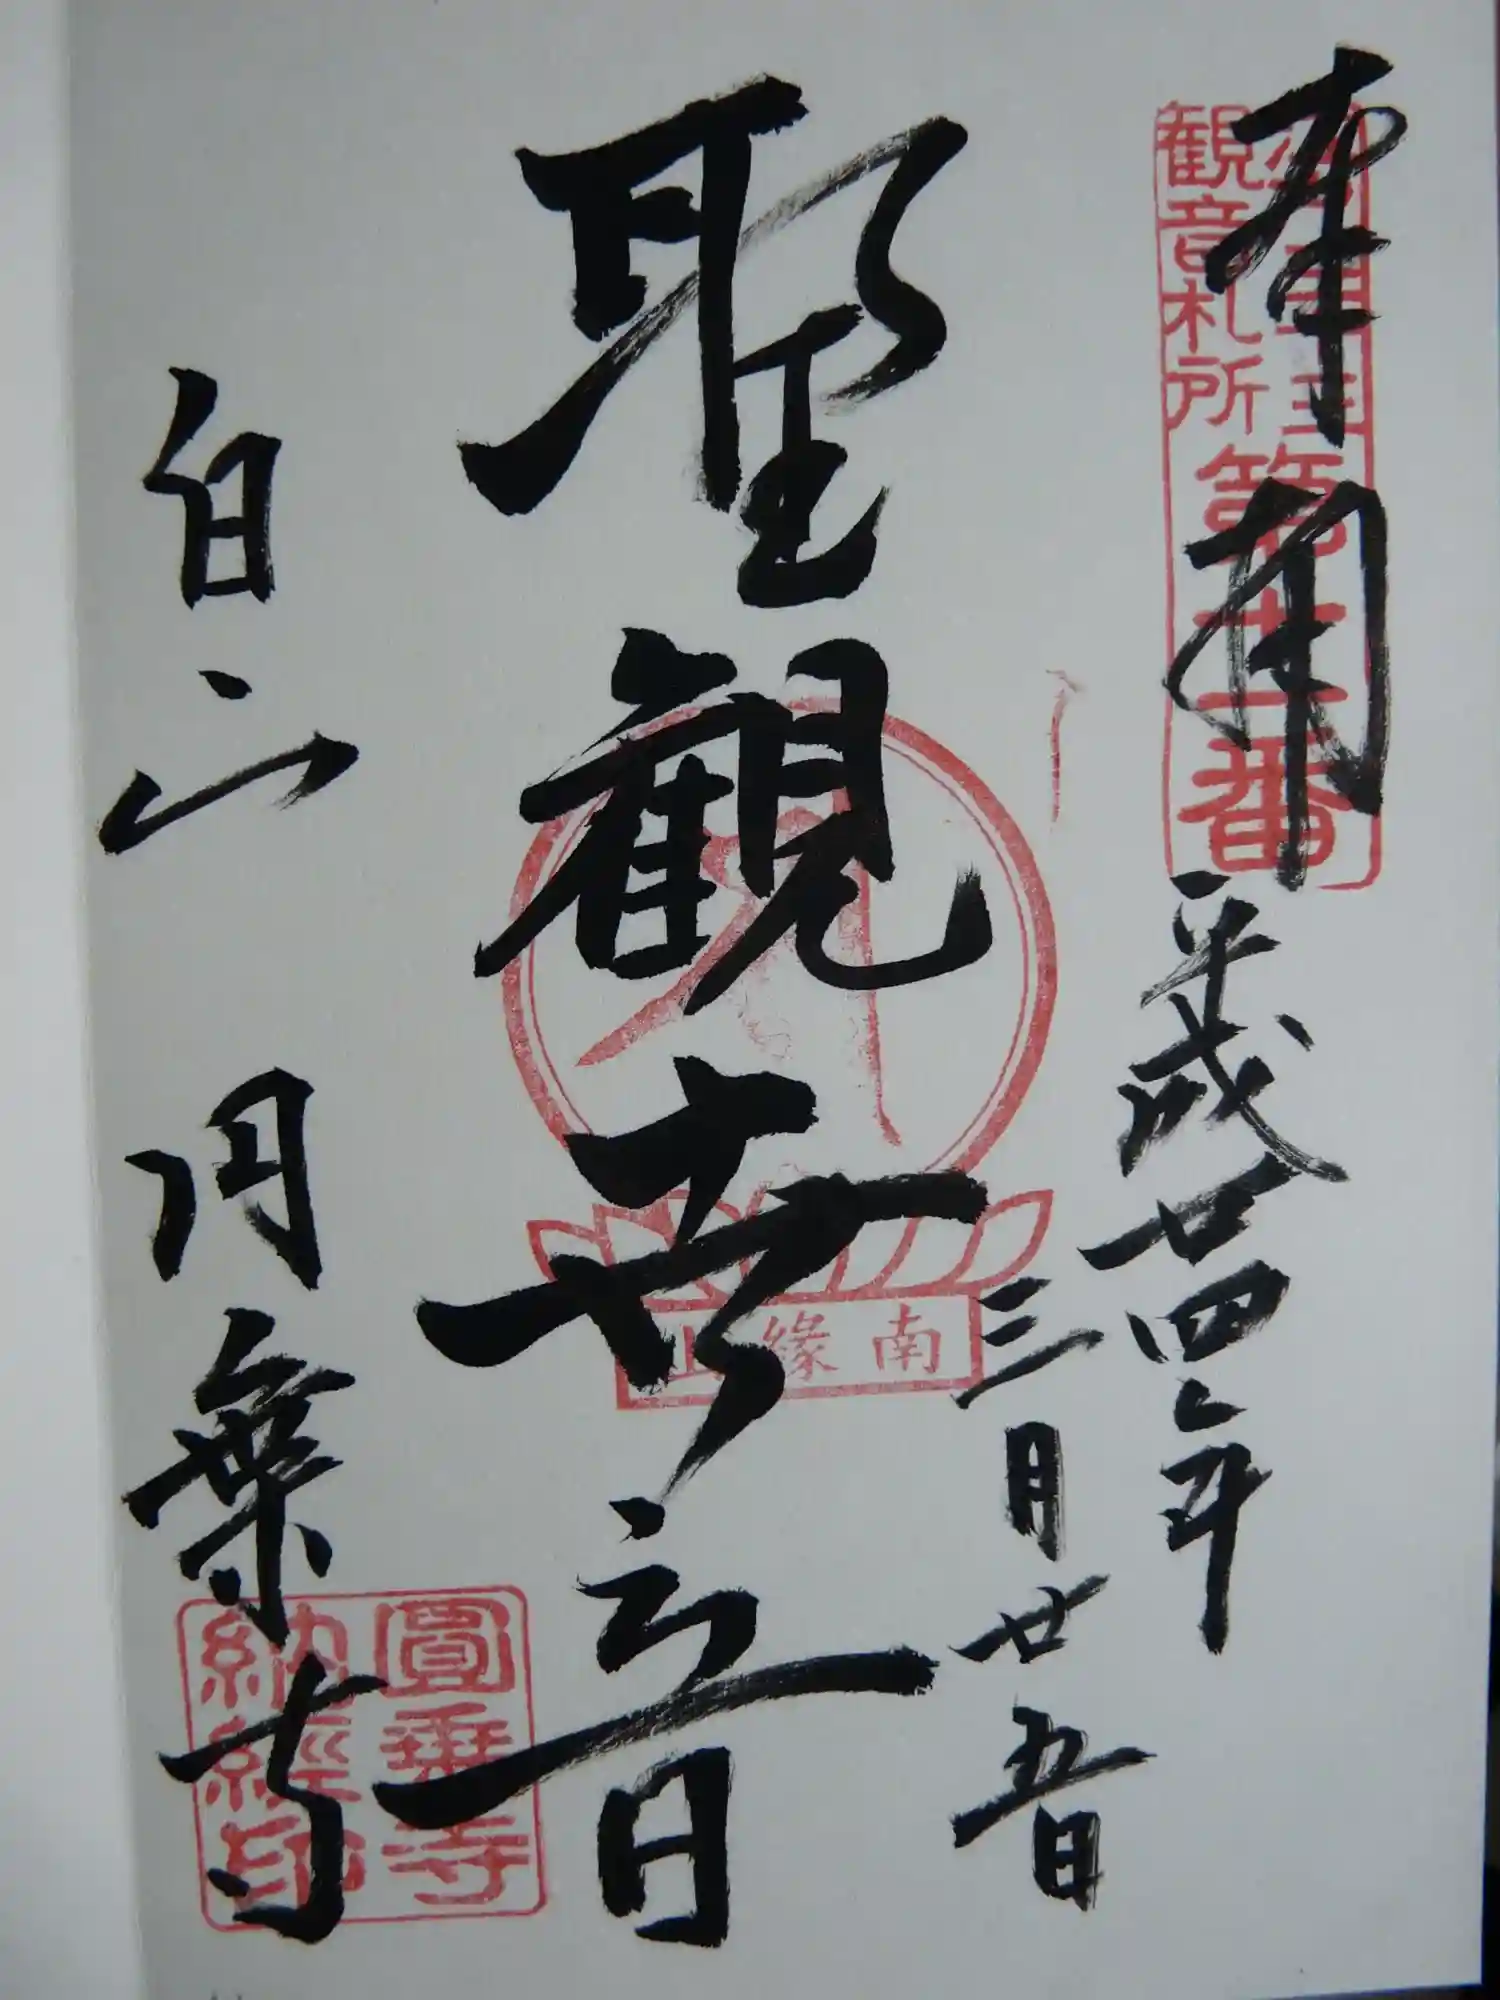 奉拝
平成廿四年
三月廿五日
聖観世音
白山
円乗寺
観音札所
第十一番
南縁山
圓乗寺
納経印